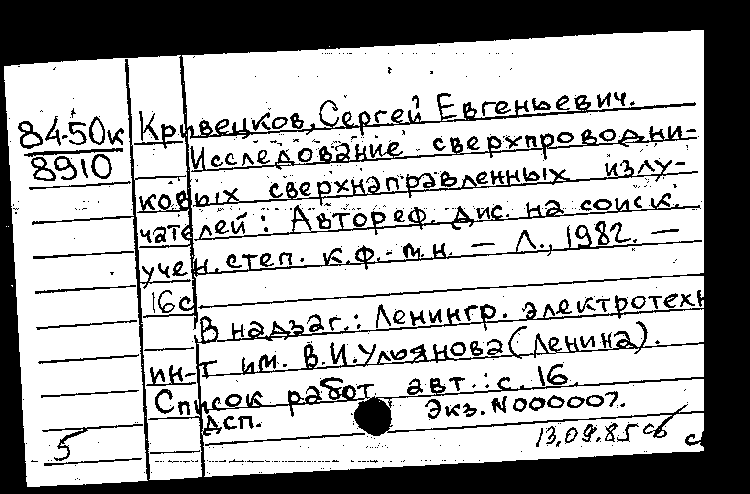 84-50к
8910
Кривецков, Сергей Евгеньевич.
Исследование сверхпроводни-
ковых сверхнаправленных излу-
чателей: Автореф. дис. на соиск.
учен. степ. к.ф.-м.н. — Л., 1982. —
16с.
В надзаг.: Ленингр. электротехн
ин-т им. В.И.Ульянова (Ленина).
Список работ авт.: с. 16.
ДСП. Экз. N000007.
5
13.09.85